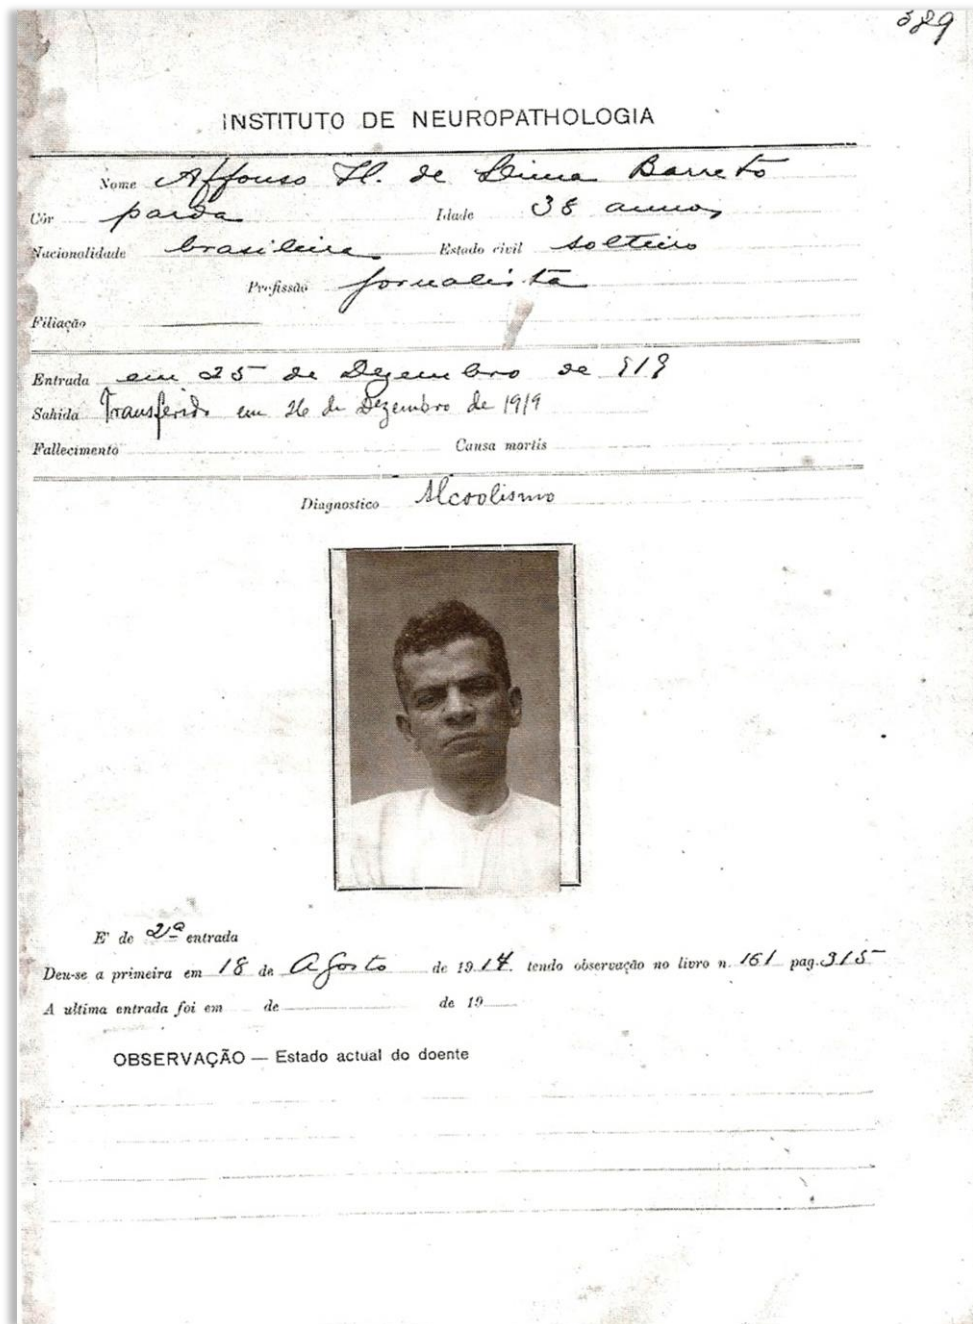 389
INSTITUTO DE NEUROPATHOLOGIA
Nome Affonso H. de Lima Barreto
Côr parda Idade 38 annos
Nacionalidade brasileira Estado civil solteiro
Profissão jornalista
Filiação
Entrada em 25 de Dezembro de 919
Sahida Transferido em 26 de Dezembro de 1919
Fallecimento Causa mortis
Diagnostico Alcoolismo
E' de 2ª entrada
Deu-se a primeira em 18 de Agosto de 1914. tendo observação no livro n. 161 pag. 315
A ultima entrada foi em de de 19
OBSERVAÇÃO — Estado actual do doente